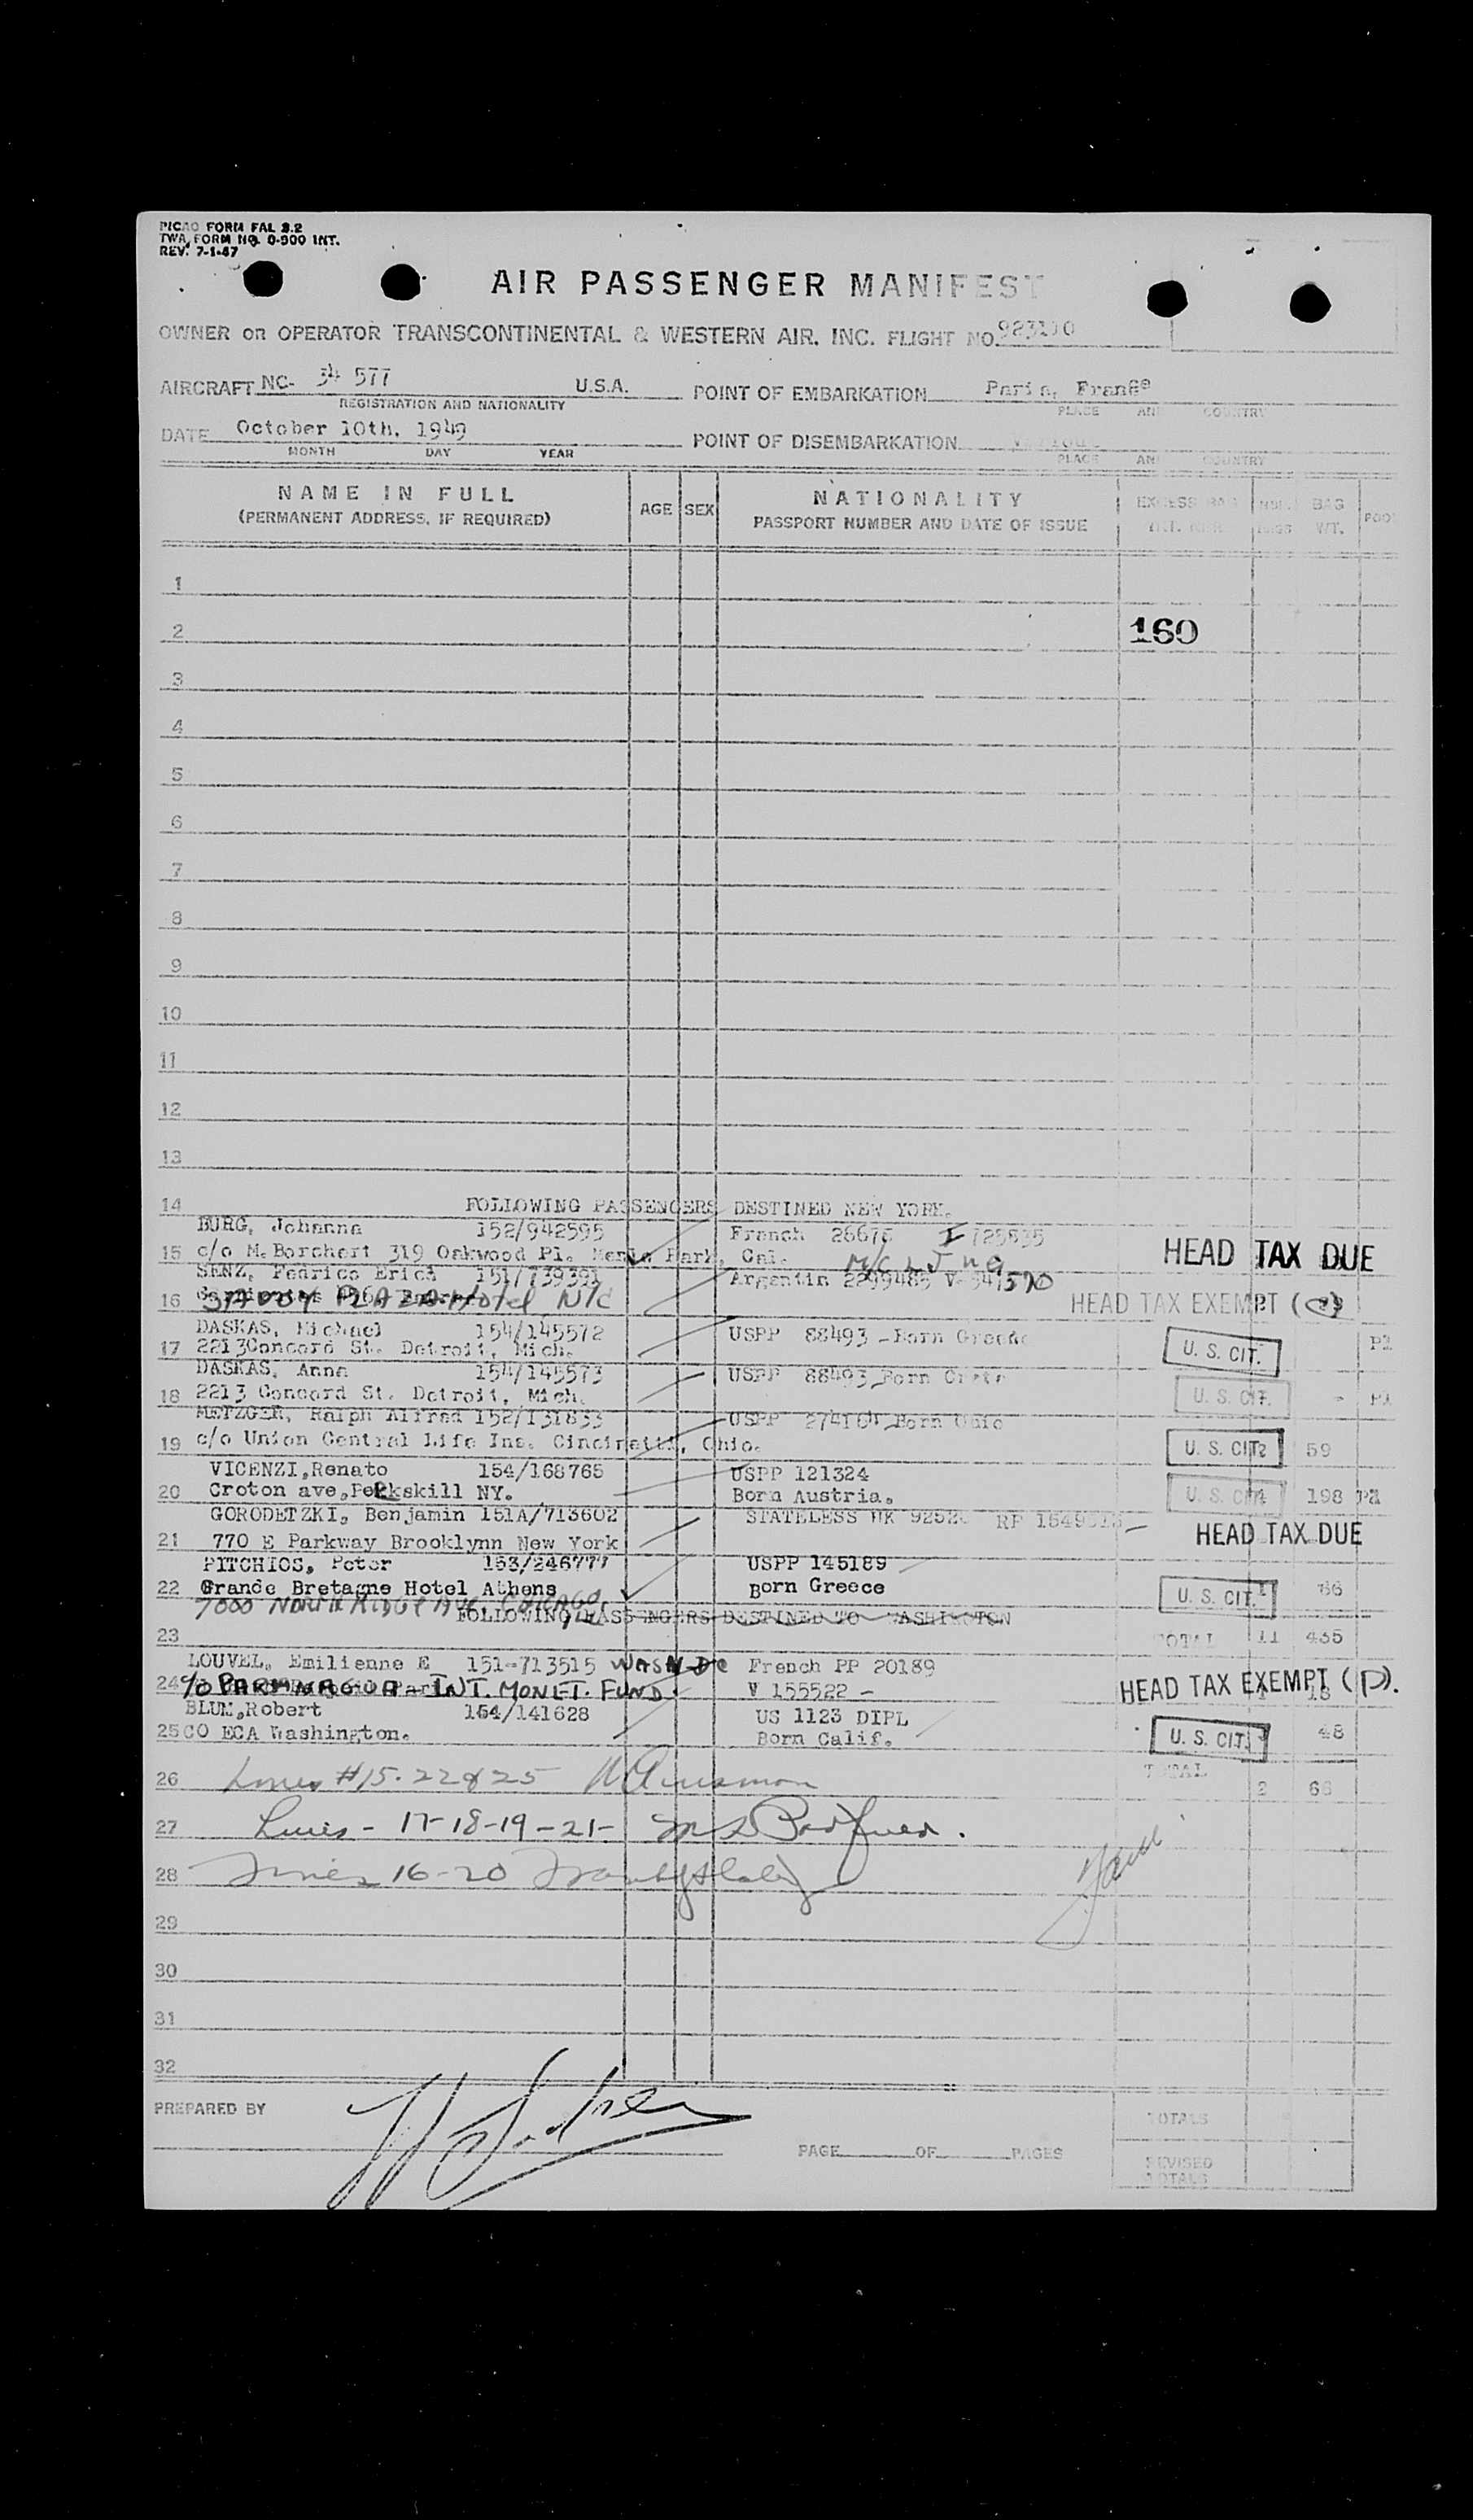 PICAO FORM FAL 2.2
TWA FORM NO. 0-900 INT.
REV. 7-1-47
AIR PASSENGER MANIFEST
OWNER OR OPERATOR TRANSCONTINENTAL & WESTERN AIR. INC. FLIGHT NO.
AIRCRAFT NC- 34 577 U.S.A. POINT OF EMBARKATION Paris, France
REGISTRATION AND NATIONALITY PLACE AND COUNTRY
DATE October 10th, 1949 POINT OF DISEMBARKATION Various
MONTH DAY YEAR PLACE AND COUNTRY
NAME IN FULL AGE SEX NATIONALITY EXCESS BAG BAG
(PERMANENT ADDRESS, IF REQUIRED) PASSPORT NUMBER AND DATE OF ISSUE WT.
1
2 160
3
4
5
6
7
8
9
10
11
12
13
14 FOLLOWING PASSENGERS DESTINED NEW YORK.
BURG, Johanna 152/942595 French
15 c/o M. Borchert 319 Oakwood Pl. Menlo Park, Cal. HEAD TAX DUE
SENZ, Fedrico Erich 151/739391 Argentin 2299485
16 SAVOY PLAZA Hotel NYC HEAD TAX EXEMPT
DASKAS, Michael 154/145572 USPP 88493 Born Greece
17 2213Concord St. Detroit, Mich. U. S. CIT.
DASKAS, Anna 154/145573 USPP 88493 Born Crete
18 2213 Concord St. Detroit, Mich. U. S. CIT.
METZGER, Ralph Alfred 152/131833 USPP Born Ohio
19 c/o Union Central Life Ins. Cincinatti, Ohio. U. S. CIT. 2 59
VICENZI,Renato 154/168765 USPP 121324
20 Croton ave,Peekskill NY. Born Austria. U. S. CIT. 198
GORODETZKI, Benjamin 151A/713602 STATELESS
21 770 E Parkway Brooklynn New York HEAD TAX DUE
PITCHIOS, Peter 153/246777 USPP 145189
22 Grande Bretagne Hotel Athens Born Greece U. S. CIT.
7000 NORTH RIDGE AVE. CHICAGO
FOLLOWING PASSENGERS DESTINED TO WASHINGTON
23 TOTAL 11 435
LOUVEL, Emilienne E 151-713515 WASH DC French PP 20189
24 c/o INT. MONET. FUND. V 155522 - HEAD TAX EXEMPT (D).
BLUM,Robert 154/141628 US 1123 DIPL
25 CO ECA Washington. Born Calif. U. S. CIT. 48
26 Lines #15.22&25 TOTAL 2
27 Lines - 17-18-19-21-
28 Lines 16-20
29
30
31
32
PREPARED BY TOTALS
PAGE OF PAGES
REVISED
TOTALS